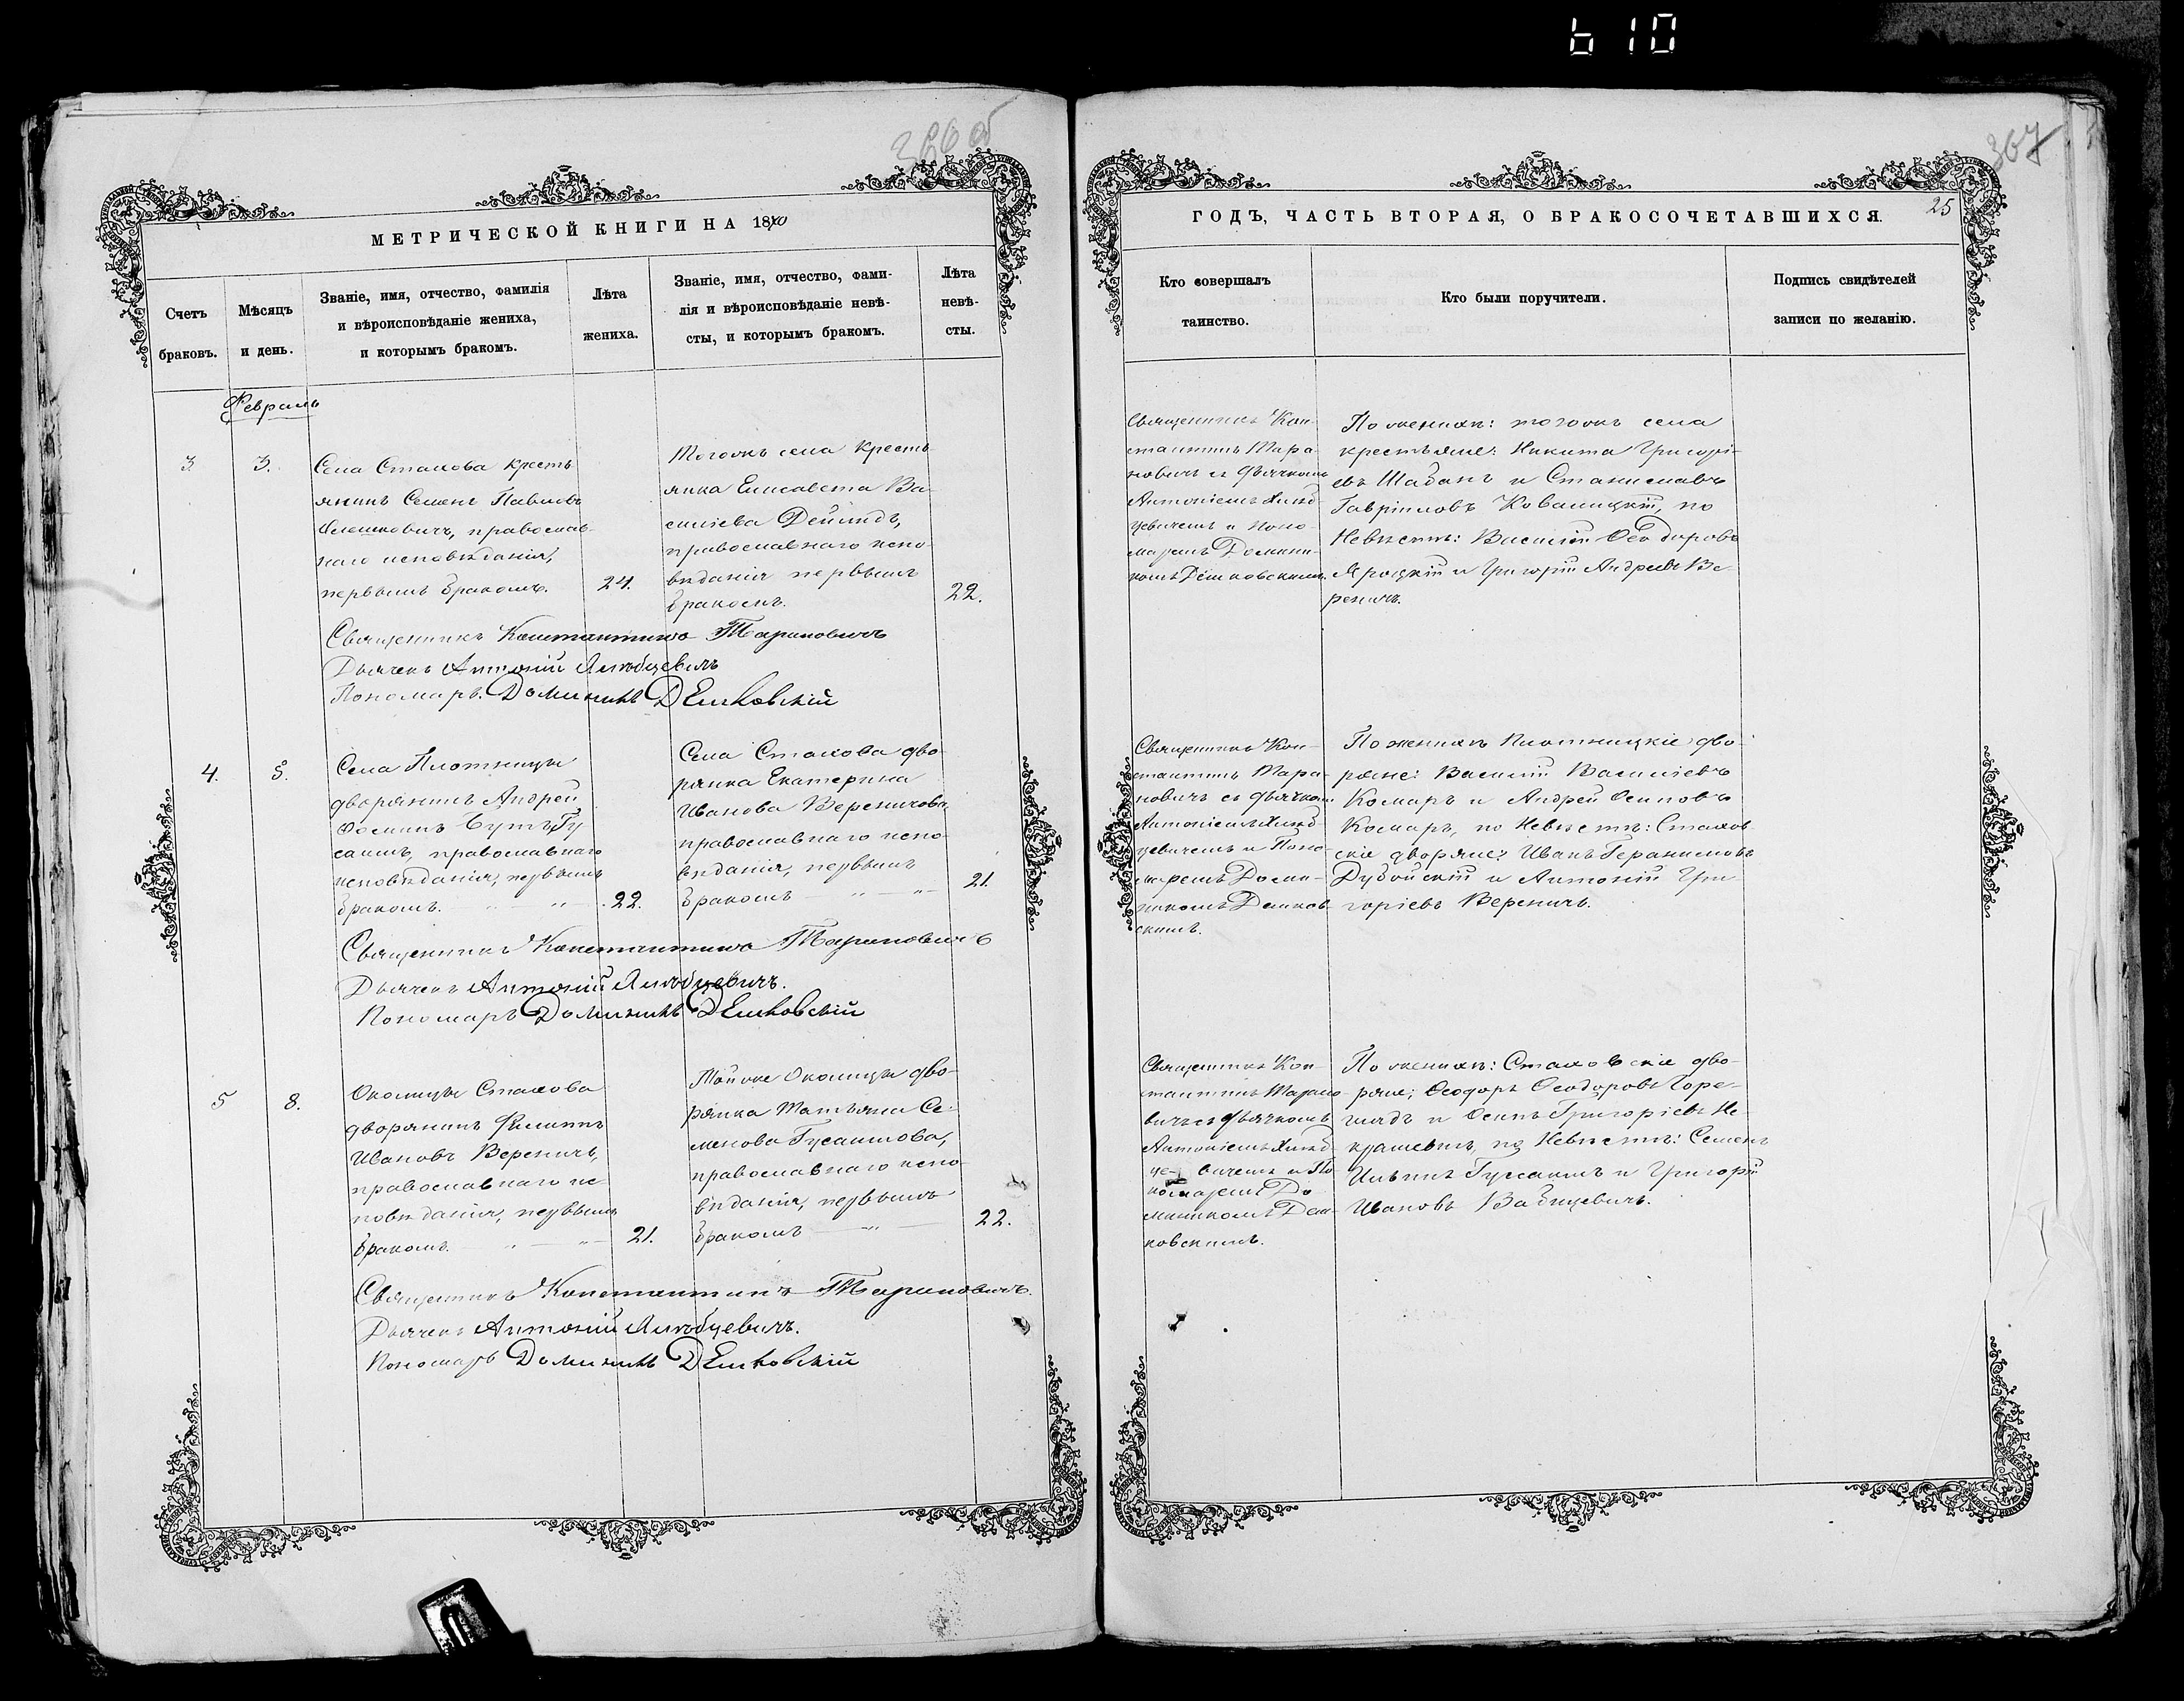 610
366 об
МЕТРИЧЕСКОЙ КНИГИ НА 1870
Счетъ
браковъ.
Мѣсяцъ
и день.
Званіе, имя, отчество, фамилія
и вѣроисповѣданіе жениха,
и которымъ бракомъ.
Лѣта
жениха.
Званіе, имя, отчество, фами-
лія и вѣроисповѣданіе невѣ-
сты, и которымъ бракомъ.
Лѣта
невѣ-
сты.
Февраль
3
3.
Села Стахова кресть
янинъ Семенъ Павловъ
православ-
наго исповѣданія,
первымъ бракомъ.
24.
Тогожъ села кресть
янка Елисавета Ва
силіева
православнаго испо
вѣданія первымъ
бракомъ.
22.
Священникъ Константинъ Тарановичъ
Дьячекъ Антоній
Пономарь Доминикъ Дешковскій
4.
5.
Села Плотницы
дворянинъ Андрей
Ѳоминъ Бутъ Гу
саимъ, православнаго
исповѣданія, первымъ
бракомъ. — „ — 22.
Села Стахова дво
рянка Екатерина
Иванова Вереничова
православнаго испо
вѣданія, первымъ
бракомъ — „ —
21.
Священникъ Константинъ Тарановичъ
Дьячекъ Антоній
Пономарь Доминикъ Дешковскій
5
8.
Околицы Стахова
дворянинъ Филиппъ
Ивановъ Вереничъ,
православнаго ис
повѣданія, первымъ
бракомъ. „ — „ — 21.
Тойже Околицы дво-
рянка Татьяна Се-
менова Гусаимова,
православнаго испо-
вѣданія, первымъ
бракомъ — „ —
22.
Священникъ Константинъ Тарановичъ.
Дьячекъ Антоній
Пономарь Доминикъ Дешковскій
367
25
ГОДЪ, ЧАСТЬ ВТОРАЯ, О БРАКОСОЧЕТАВШИХСЯ.
Кто совершалъ
таинство.
Кто были поручители.
Подпись свидѣтелей
записи по желанію.
Священникъ Кон-
стантинъ Тара
новичъ съ дьячкомъ
Антоніемъ
и поно-
маремъ Домини-
комъ Дешковскимъ.
По женихѣ: тогожъ села
крестьяне: Никита Григорі-
евъ Шаданъ и Станиславъ
Гавріиловъ Ковалицкій, по
Невѣстѣ: Василій Ѳеодоровъ
Яроцкій и Григорій Андреевъ Ве
реничъ.
Священникъ Кон-
стантинъ Тара-
новичъ съ дьячкомъ
Антоніемъ
и Поно-
маремъ Доми-
никомъ Дешков
скимъ.
По женихѣ Плотницкіе дво-
ряне: Василій Василіевъ
Комаръ и Андрей Осиповъ
Комаръ, по Невѣстѣ: Стахов-
скіе дворяне: Иванъ Герасимовъ
Дубойскій и Антоній Гри-
горіевъ Вереничъ.
Священникъ Кон-
стантинъ Тарано-
вичъ съ дьячкомъ
Антоніемъ
и По
номаремъ До
миникомъ Деш-
ковскимъ.
По женихѣ: Стаховскіе дво-
ряне; Ѳеодоръ Ѳеодоровъ Горе-
глядъ и Осипъ Григоріевъ Не-
крашевичъ, по Невѣстѣ: Семенъ
Ильинъ Гусаимъ и Григорій
Ивановъ Вабищевичъ.